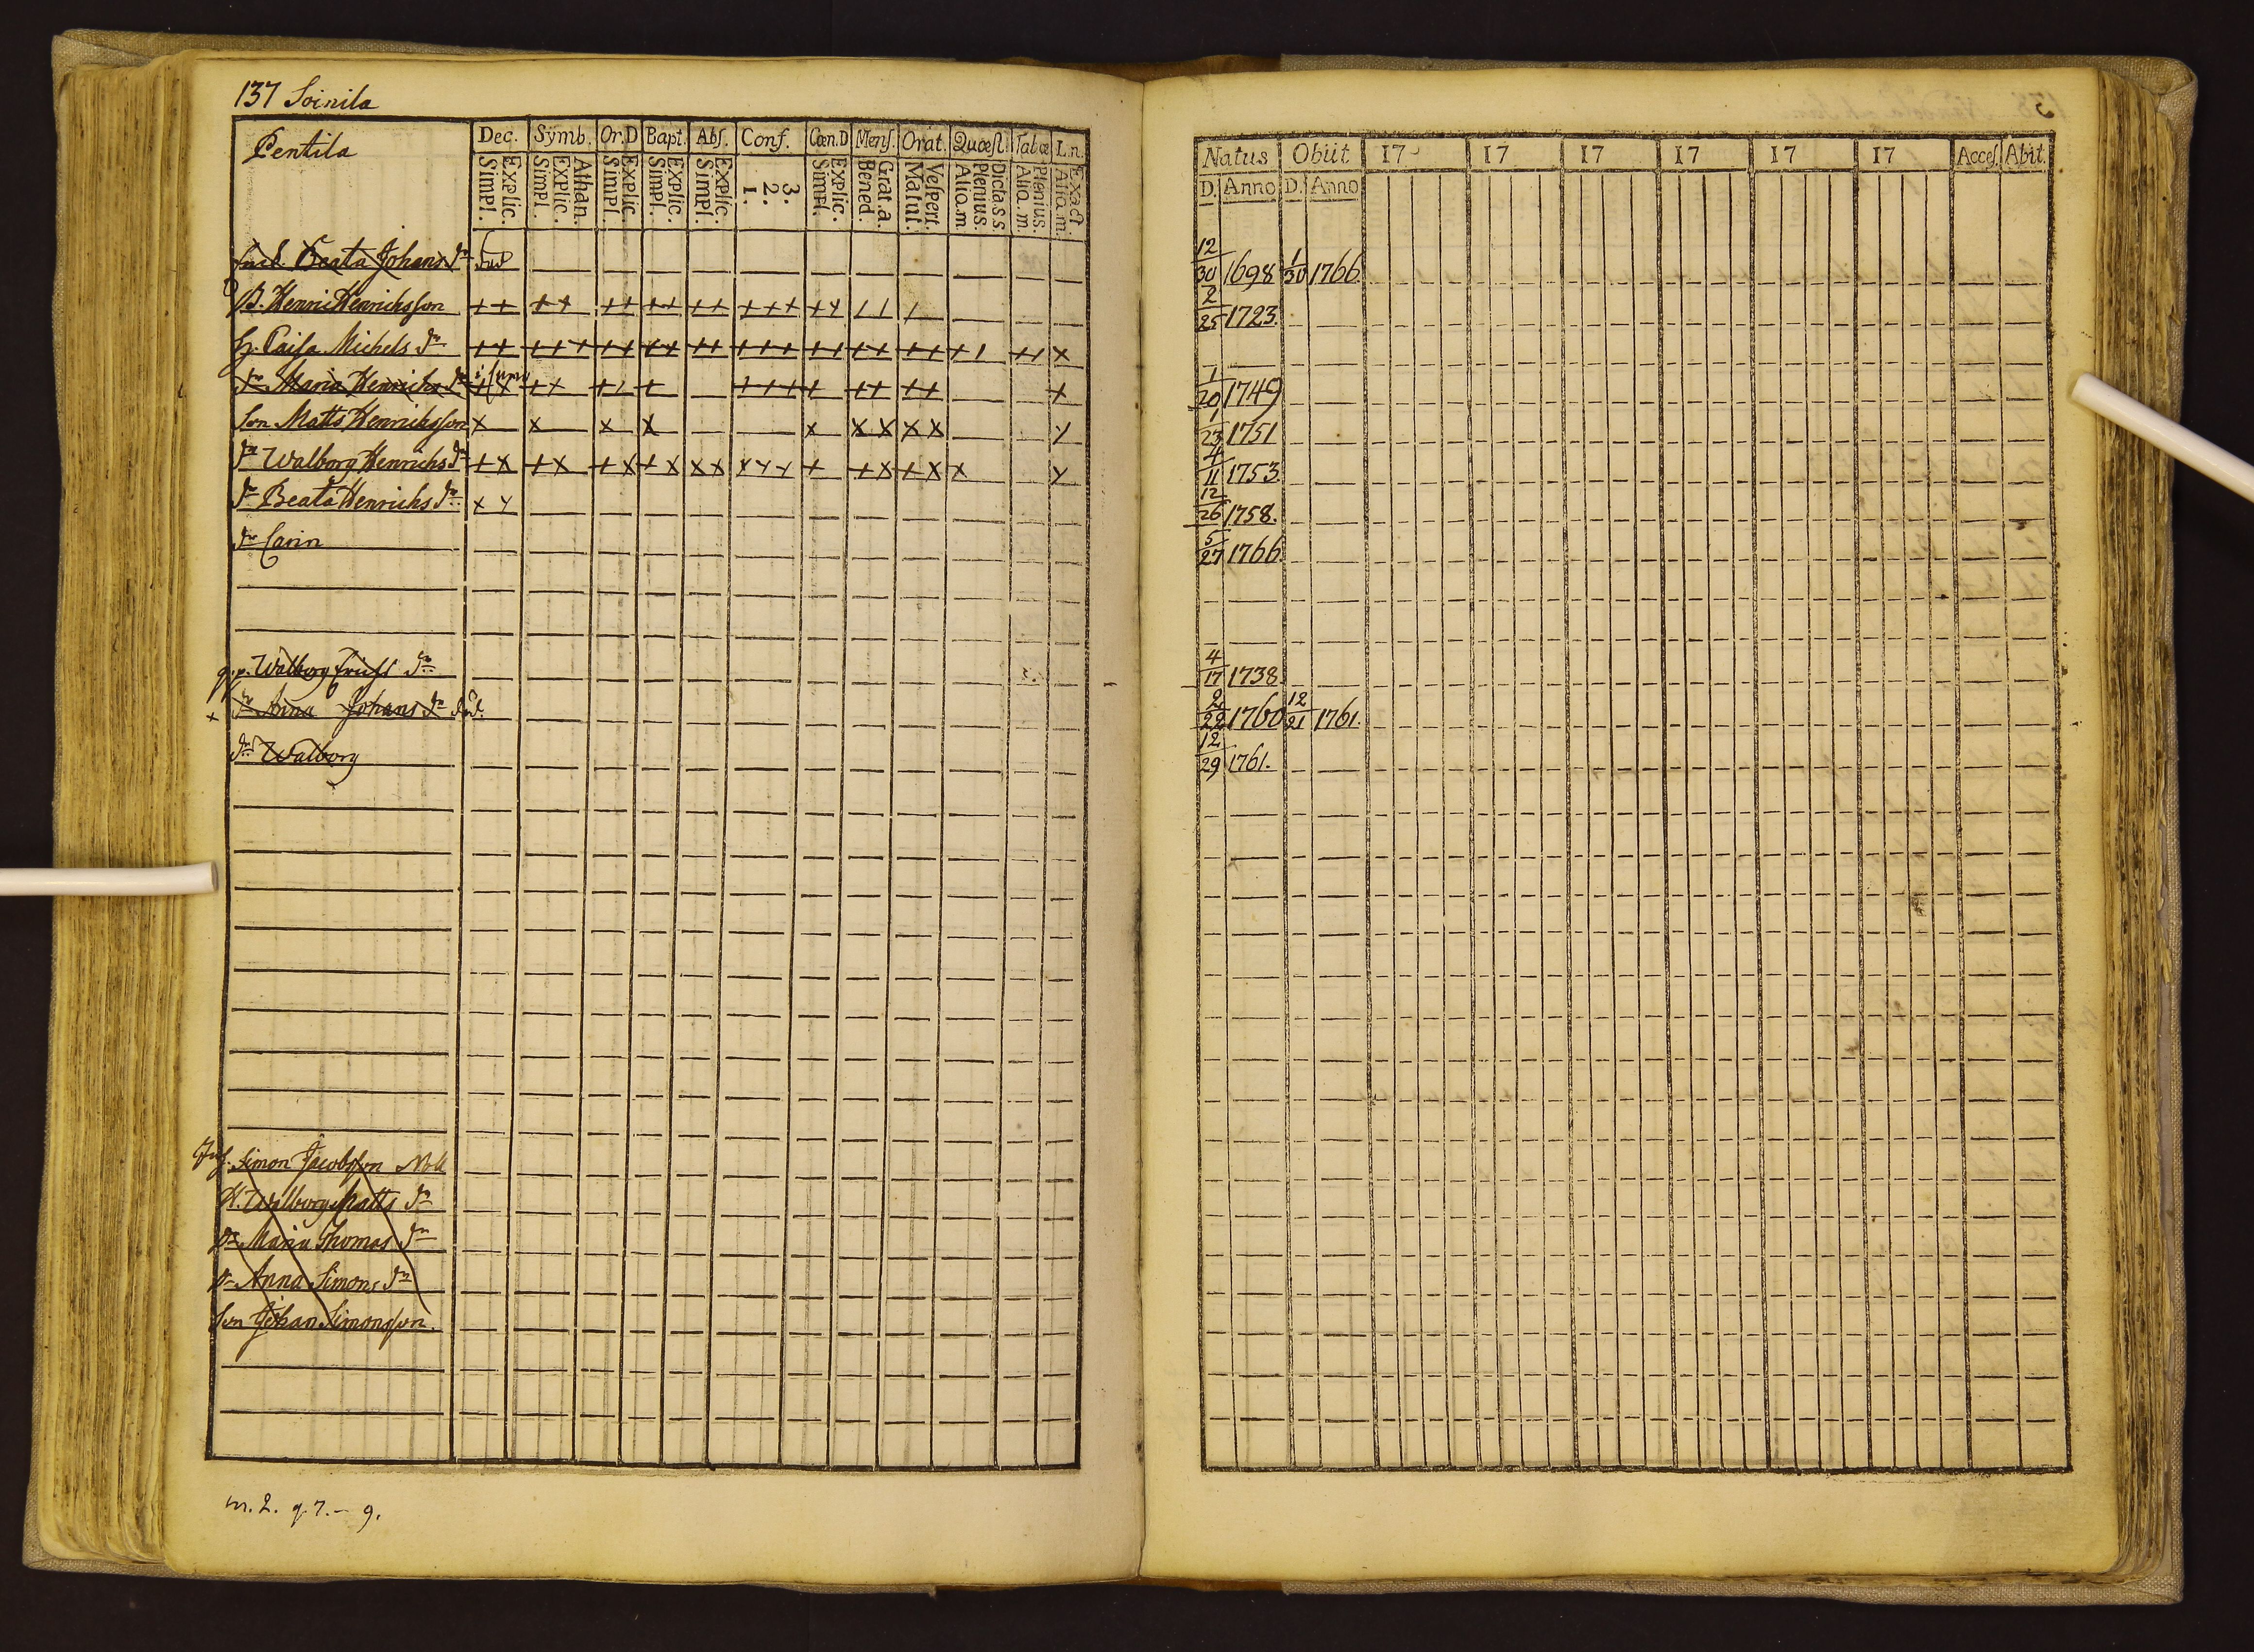 137 Soinila
Pentila
Dec. Symb. Or.D Bapt. Abs. Conf. Cœn.D Mens. Orat. Quæst. Tabæ L.n.
Explic. Simpl. Athan. Explic. Simpl. Explic. Simpl. Explic. Simpl. Explic. Simpl. 3. 2. 1. Explic. Simpl. Grat.a. Bened. Vespert. Matut. Dicta.s.s. Plenius. Aliq.m. Plenius. Aliq.m. Exact. Aliq.m.
Beata Johans dr död
B. Henric Henrichsson ++ ++ ++ ++ ++ +++ ++ / / /
H. Caisa Michels dr
dr Maria Henrichs dr
Son Matts Henrichsson x x x x x x x x x
dr Walborg Henrichs dr
dr Beata Henrichs dr
dr Carin
Walborg Erichs dr
+ dr Anna Johans dr död.
dr Walborg
Inh. Simon Jacobsson Noll
H. Walborg Matts dr
dr Maria Thomas dr
dr Anna Simons dr
Son Johan Simonsson.
m. 2. q. 7. – 9.
Natus Obiit 17 17 17 17 17 17 Acces. Abit.
D. Anno D. Anno
12/30 1698 1/30 1766.
2/25 1723.
1/20 1749
1/23 1751
4/11 1753.
12/26 1758.
5/27 1766.
4/17 1738.
2/22 1760 12/21 1761.
12/29 1761.